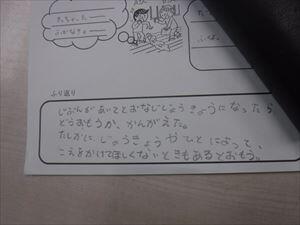 ふり返り
じぶんがあいてとおなじじょうきょうになったら
どうおもうか、かんがえた。
たしかに、じょうきょうやひとによって、
こえをかけてほしくないときもあるとおもう。